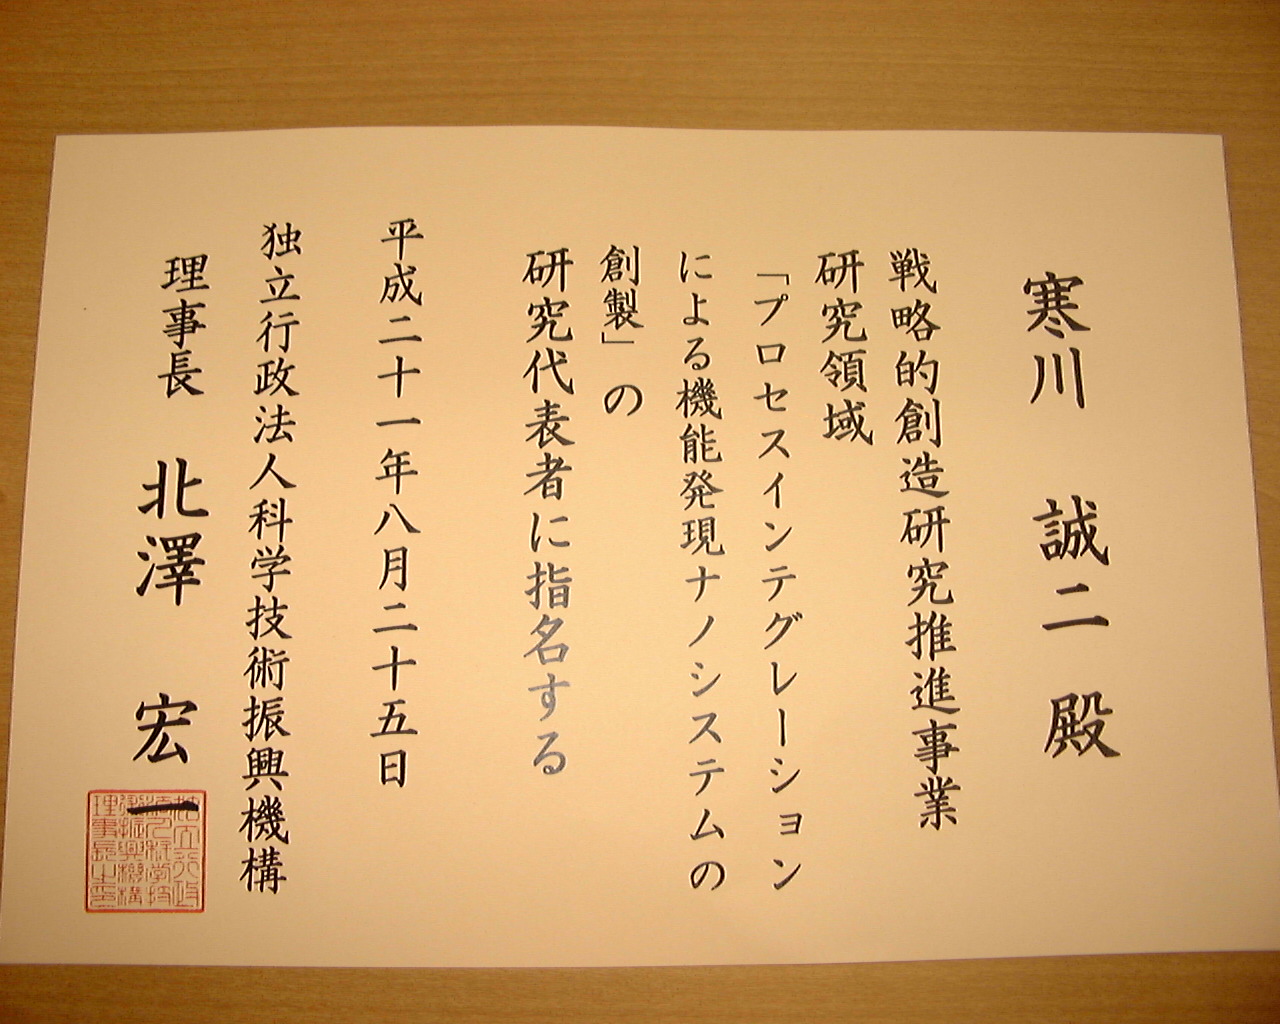 寒川 誠二 殿
戦略的創造研究推進事業
研究領域
「プロセスインテグレーション
による機能発現ナノシステムの
創製」の
研究代表者に指名する
平成二十一年八月二十五日
独立行政法人科学技術振興機構
理事長 北澤 宏一
独立行政
法人科学技
術振興機構
理事長之印